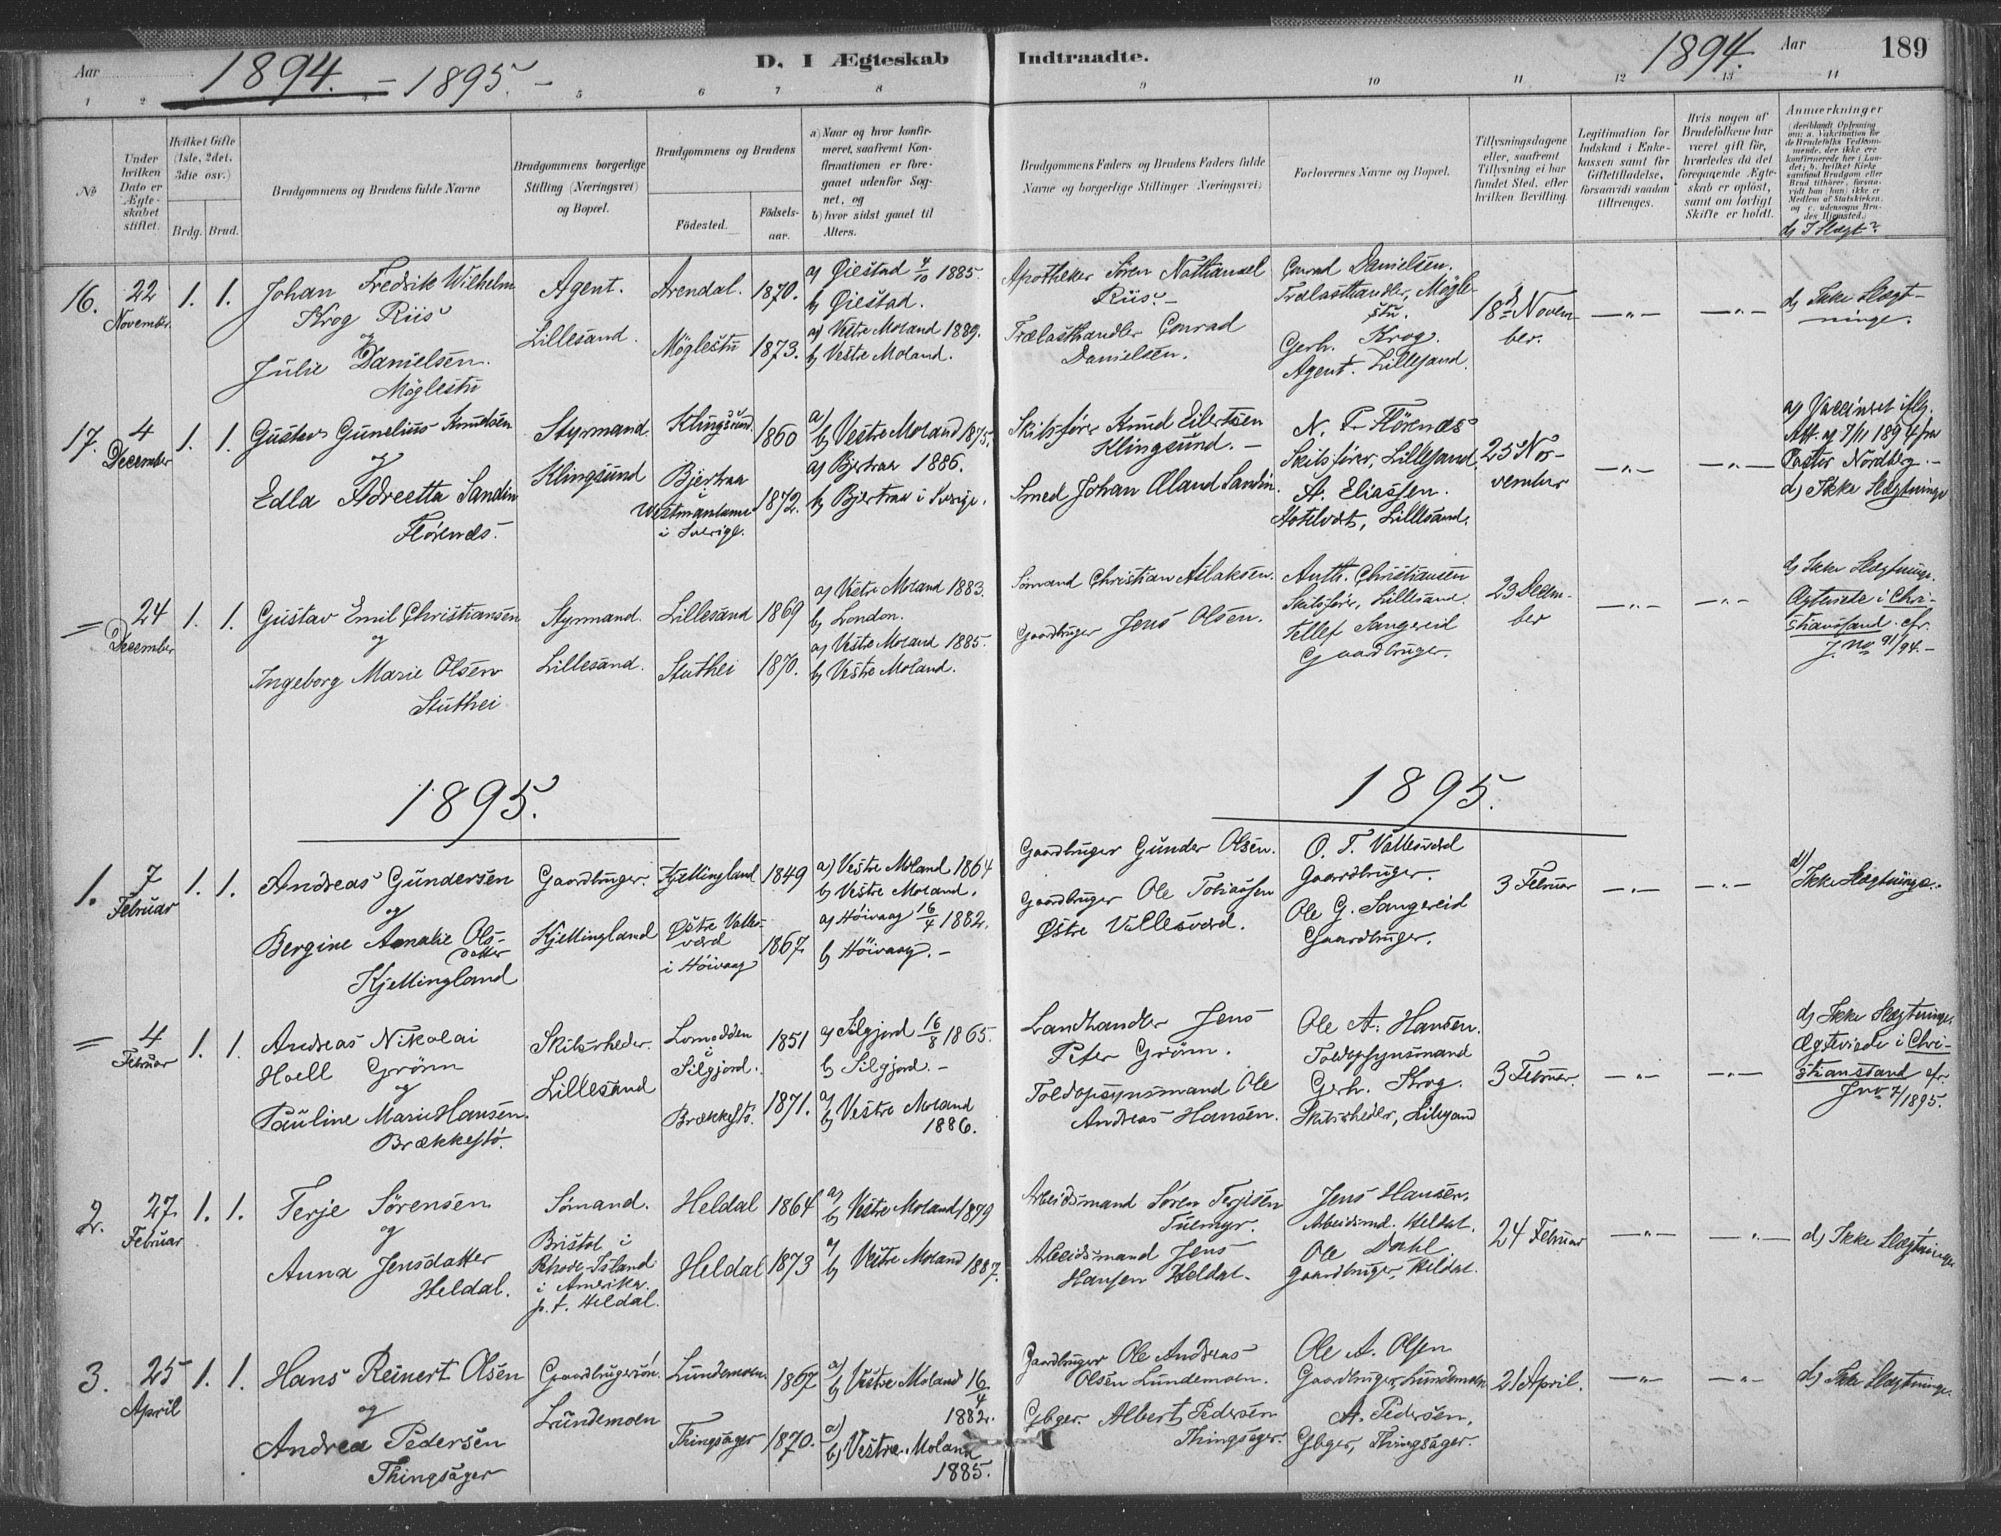 Aar
1894. - 1895. -
D. I Ægteskab
Indtraadte.
1894.
Aar
189
1 2 4 5 6 7 8 9 10 11 12 13 14
No
Under hvilken Dato er Ægteskabet stiftet.
Hvilket Gifte (1ste, 2det, 3die osv.)
Brdg. Brud.
Brudgommens og Brudens fulde Navne
Brudgommens borgerlige Stilling (Næringsvei) og Bopæl.
Brudgommens og Brudens
Födested.
Födselsaar.
a) Naar og hvor konfirmeret, saafremt Konfirmationen er foregaaet udenfor Sognet, og
b) hvor sidst gaaet til Alters.
Brudgommens Faders og Brudens Faders fulde Navne og borgerlige Stillinger Næringsvei)
Forlovernes Navne og Bopæl.
Tillysningsdagene eller, saafremt Tillysning ei har fundet Sted, efter hvilken Bevilling.
Legitimation for Indskud i Enkekassen samt for Giftetilladelse, forsaavidt saadan tiltrænges.
Hvis nogen af Brudefolkene har været gift för, hvorledes da det foregaaende Ægteskab er oplöst, samt om lovligt Skifte er holdt.
Anmærkninger
(deriblandt Oplysning om: a. Vakcination for de Brudefolks Vedkommende, der ikke ere konfirmerede her i Landet, b. hvilket Kirkesamfund Brudgom eller Brud tilhörer, forsaavidt han (hun) ikke er Medlem af Statskirken, og c. udensogns Brudes Hjemsted.)
d) I Slægt?
16.
22 November
1. 1.
Johan Fredrik Wilhelm
Krog Riis
og
Julie Danielsen.
Möglestu
Agent.
Lillesand.
Arendal. 1870.
Möglestu 1873.
a) Øiestad 4/10 1885.
b) Øiestad.
a) Vestre Moland 1889.
b) Vestre Moland.
Apotheker Sören Nathanael
Riis -
Trælasthandler Conrad
Danielsen.
Conrad Danielsen.
Trælasthandler, Mögle-
stu.
Gerh. Krog.
Agent. Lillesand.
18de Novem
ber.
-„- -„-
d) Ikke Slægt-
ninge.
17.
4 December
1. 1.
Gustav Gunelius Knudsen
og
Edla Adreetta Sandin
Flörends.
Styrmand
Klingsund
Klingsund 1860
Bjertraa
i
Westmanland
i Sverige.
1872.
a)
b) Vestre Moland 1875.
a) Bjertraa 1886.
b) Bjertraa i Sverige.
Skibsförer Knud Eilertsen
Klingsund. -
Smed Johan Oland Sandin.
N. P. Flörends
Skibsförer, Lillesand
A. Eliassen.
Hotelvært, Lillesand.
25 No-
vember
-„- -„-
a) Vaccineret iflg.
Att. af 7/11 1894 fra
Pastor Nordberg. -
d) Ikke Slægtninge
=
24 December
1. 1.
Gustav Emil Christiansen
og
Ingeborg Marie Olsen
Stuthei
Styrmand.
Lillesand.
Lillesand 1869
Stuthei 1870.
a) Vestre Moland 1883.
b) London.
a) Vestre Moland 1885.
b) Vestre Moland.
Sömand Christian Aslaksen.
Gaardbruger Jens Olsen.
Anth. Christiansen
Skibsförer, Lillesand.
Tellef Sangereid
Gaardbruger.
23 Decem-
ber
-„- -„-
d) Ikke Slægtninge.
Ægteviede i Chri-
stianssand. cfr.
J. No 91/94. -
1895.
1895.
1.
7 Februar
1. 1.
Andreas Gundersen
og
Bergine Amalie Ols-
datter
Kjellingland
Gaardbruger.
Kjellingland
Kjellingland 1849
Østre Valles-
værd
i Höivaag
1867
a) Vestre Moland 1864
b) Vestre Moland.
a) Höivaag 16/4 1882.
b) Höivaag. -
Gaardbruger Gunder Olsen.
Gaardbruger Ole Tobiassen
Østre Vallesværd.
O. T. Vallesværd
Gaardbruger.
Ole G. Sangereid
Gaardbruger.
3 Februar
-„- -„-
d) Ikke Slægtninge.
=
4 Februar
1. 1.
Andreas Nikolai
Hoell Grönn
og
Pauline Marie Hansen.
Brækkestö.
Skibsrheder.
Lillesand
Lomodden
i
Silgjord.
1851
Brækkestö. 1871.
a) Silgjord 16/8 1865.
b) Silgjord. -
a)
b) Vestre Moland
1886.
Landhandler Jens
Peter Grönn.
Toldopsynsmand Ole
Andreas Hansen.
Ole A. Hansen.
Toldopsynsmand
Gerh. Krog.
Skibsrheder, Lillesand
3 Februar.
-„- -„-
d) Ikke Slægtninge.
Ægteviede i Chri-
stianssand cfr.
Jno 7/1895.
2.
27 Februar
1. 1.
Terje Sörensen
og
Anna Jensdatter
Heldal.
Sömand.
Bristol i
Rhode-Island
i Amerika.
p. t. Heldal.
Heldal 1864
Heldal 1873
a)
b) Vestre Moland 1879
a)
b) Vestre Moland 1887.
Arbeidsmand Sören Terjesen
Tuemyr.
Arbeidsmand Jens
Hansen Heldal.
Jens Hansen,
Arbeidsmd. Heldal.
Ole Dahl
Gaardbruger, Heldal.
24 Februar
-„- -„-
d) Ikke Slægtninge
3.
25 April
1. 1.
Hans Reinert Olsen
og
Andrea Pedersen
Thingsager
Gaardbrugersön.
Lundemoen
Lundemoen 1867
Thingsager 1870.
a)
b) Vestre Moland 16/4
1882.
a)
b) Vestre Moland
1885.
Gaardbruger Ole Andreas
Olsen Lundemoen.
Gbger. Albert Pedersen
Thingsager.
Ole A. Olsen
Gaardbruger, Lundemoen
A. Pedersen,
Gbger, Thingsager.
21 April.
-„- -„-
d) Ikke Slægtninge.